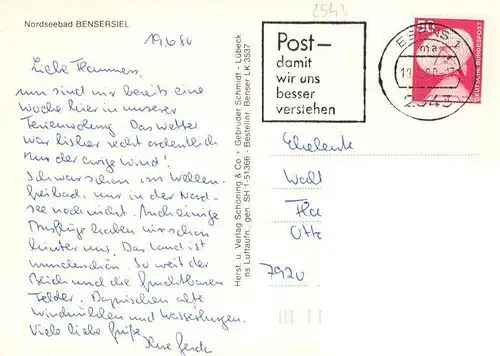 2543
Nordseebad BENSERSIEL
19.6.80
Liebe
nun sind wir bereits eine
Woche hier in unserer
Ferienwohnung. Das Wetter
war bisher recht ordentlich
nur der ewige Wind!
Schwar schon im Wellen-
freibad, nur in der Nord-
see noch nicht. Auch einige
Ausflüge haben wir schon
hinter uns. Das Land ist
wunderschön. So weit der
Deich und die fruchtbaren
Felder. Dazwischen alte
Windmühlen und Wasserburgen.
Viele liebe Grüße
Ihre Gerda
Herst. u. Verlag Schöning & Co + Gebrüder Schmidt - Lübeck
ns Luftaufn., gen. SH 1-51366 - Bestellnr. Benser LK 3537
Post-
damit
wir uns
besser
verstehen
ESENS 1
ma
2943
50
DEUTSCHE BUNDESPOST
Eheleute
Walt
Otto
7920